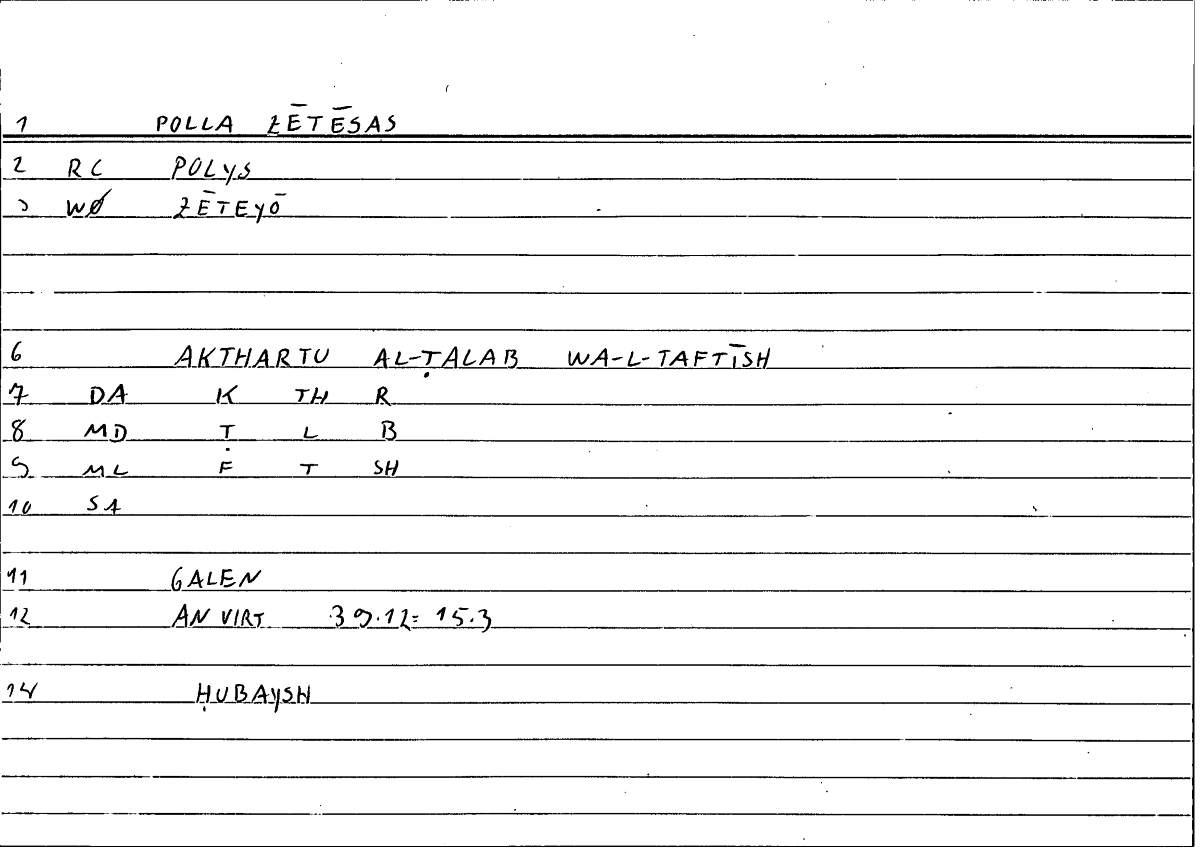 1 POLLA ZĒTĒSAS
2 RC POLYS
3 WØ ZĒTEYŌ
6 AKTHARTU AL-ṬALAB WA-L-TAFTĪSH
7 DA K TH R
8 MD Ṭ L B
9 ML F T SH
10 SA
11 GALEN
12 AN VIRT 39.12= 15.3
14 ḤUBAYSH